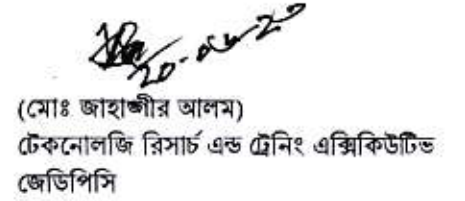 (মোঃ জাহাঙ্গীর আলম)
টেকনোলজি রিসার্চ এন্ড ট্রেনিং এক্সিকিউটিভ
জেডিপিসি